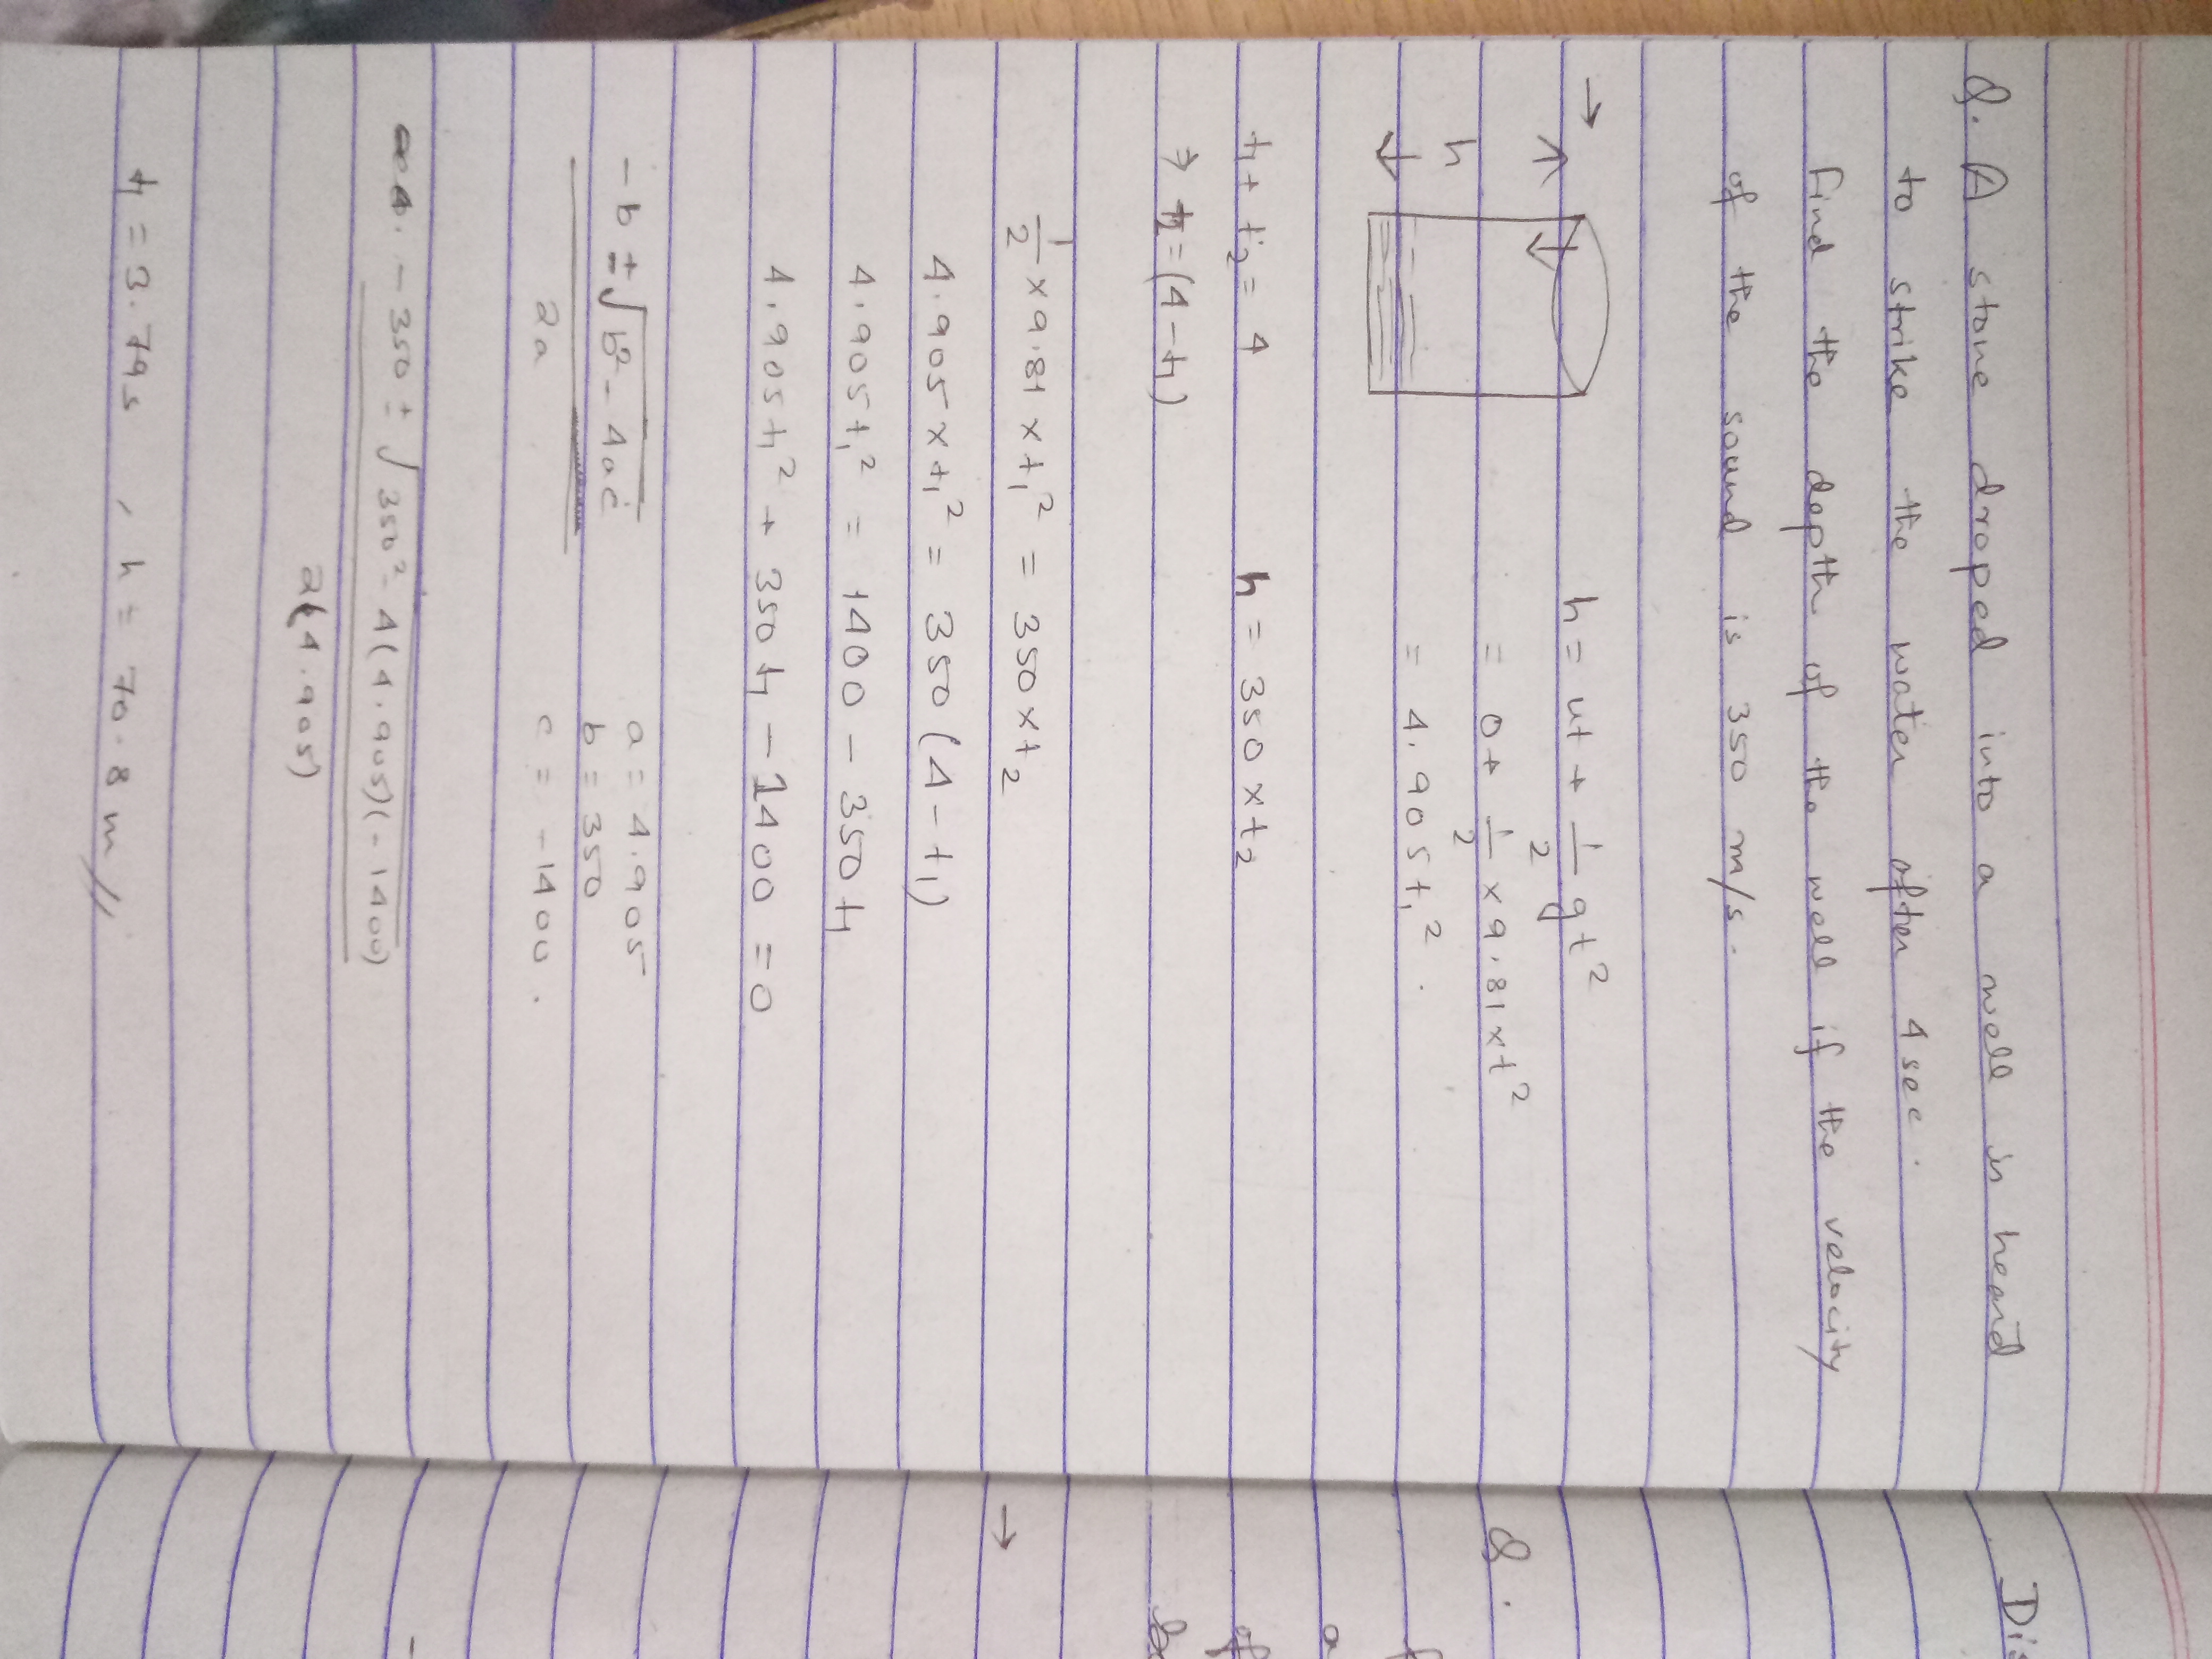 Q. A stone droped into a well is heard
to strike the water after 4 sec.
Find the depth of the well if the velocity
of the sound is 350 m/s.
→
h
h = ut + 1/2 gt²
= 0 + 1/2 × 9.81 × t²
= 4.905 t₁²
t₁ + t₂ = 4 h = 350 × t₂
⇒ t₂ = (4 - t₁)
1/2 × 9.81 × t₁² = 350 × t₂
4.905 × t₁² = 350 (4 - t₁)
4.905 t₁² = 1400 - 350 t₁
4.905 t₁² + 350 t₁ - 1400 = 0
-b ± √b² - 4ac / 2a
a = 4.905
b = 350
c = -1400.
-350 ± √350² - 4(4.905)(-1400) / 2(4.905)
t₁ = 3.79s , h = 70.8 m //
Dis
Q.
a
of
→